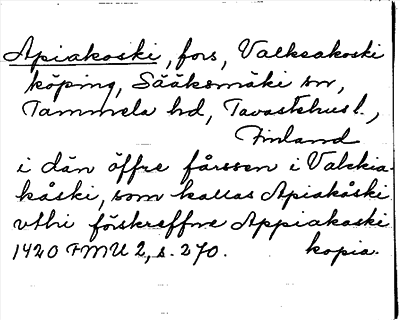 Apiakoski, fors, Valkeakoski
köping, Sääksmäki sn,
Tammela hd, Tavastehus l.,
Finland
i dän öffre fårssen i Valckia-
kåski, som kallas Apiakåski
uthi förskreffne Appiakoski
1420 FMU 2, s. 270. kopia.